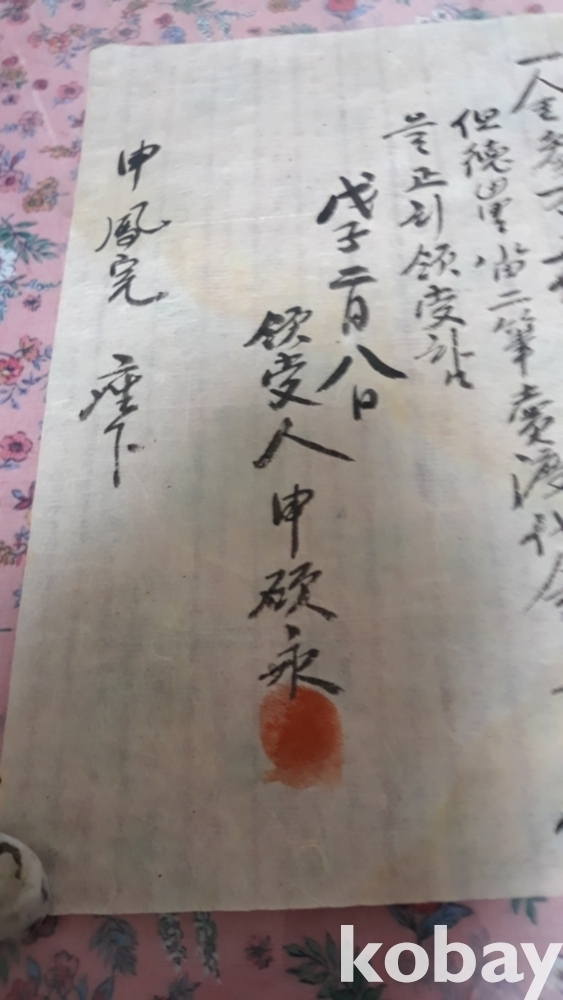 一金參万
但德山里畓二筆賣渡代金
을正히領受함
戊子二月八日
領受人 申碩永
申鳳完 座下
kobay